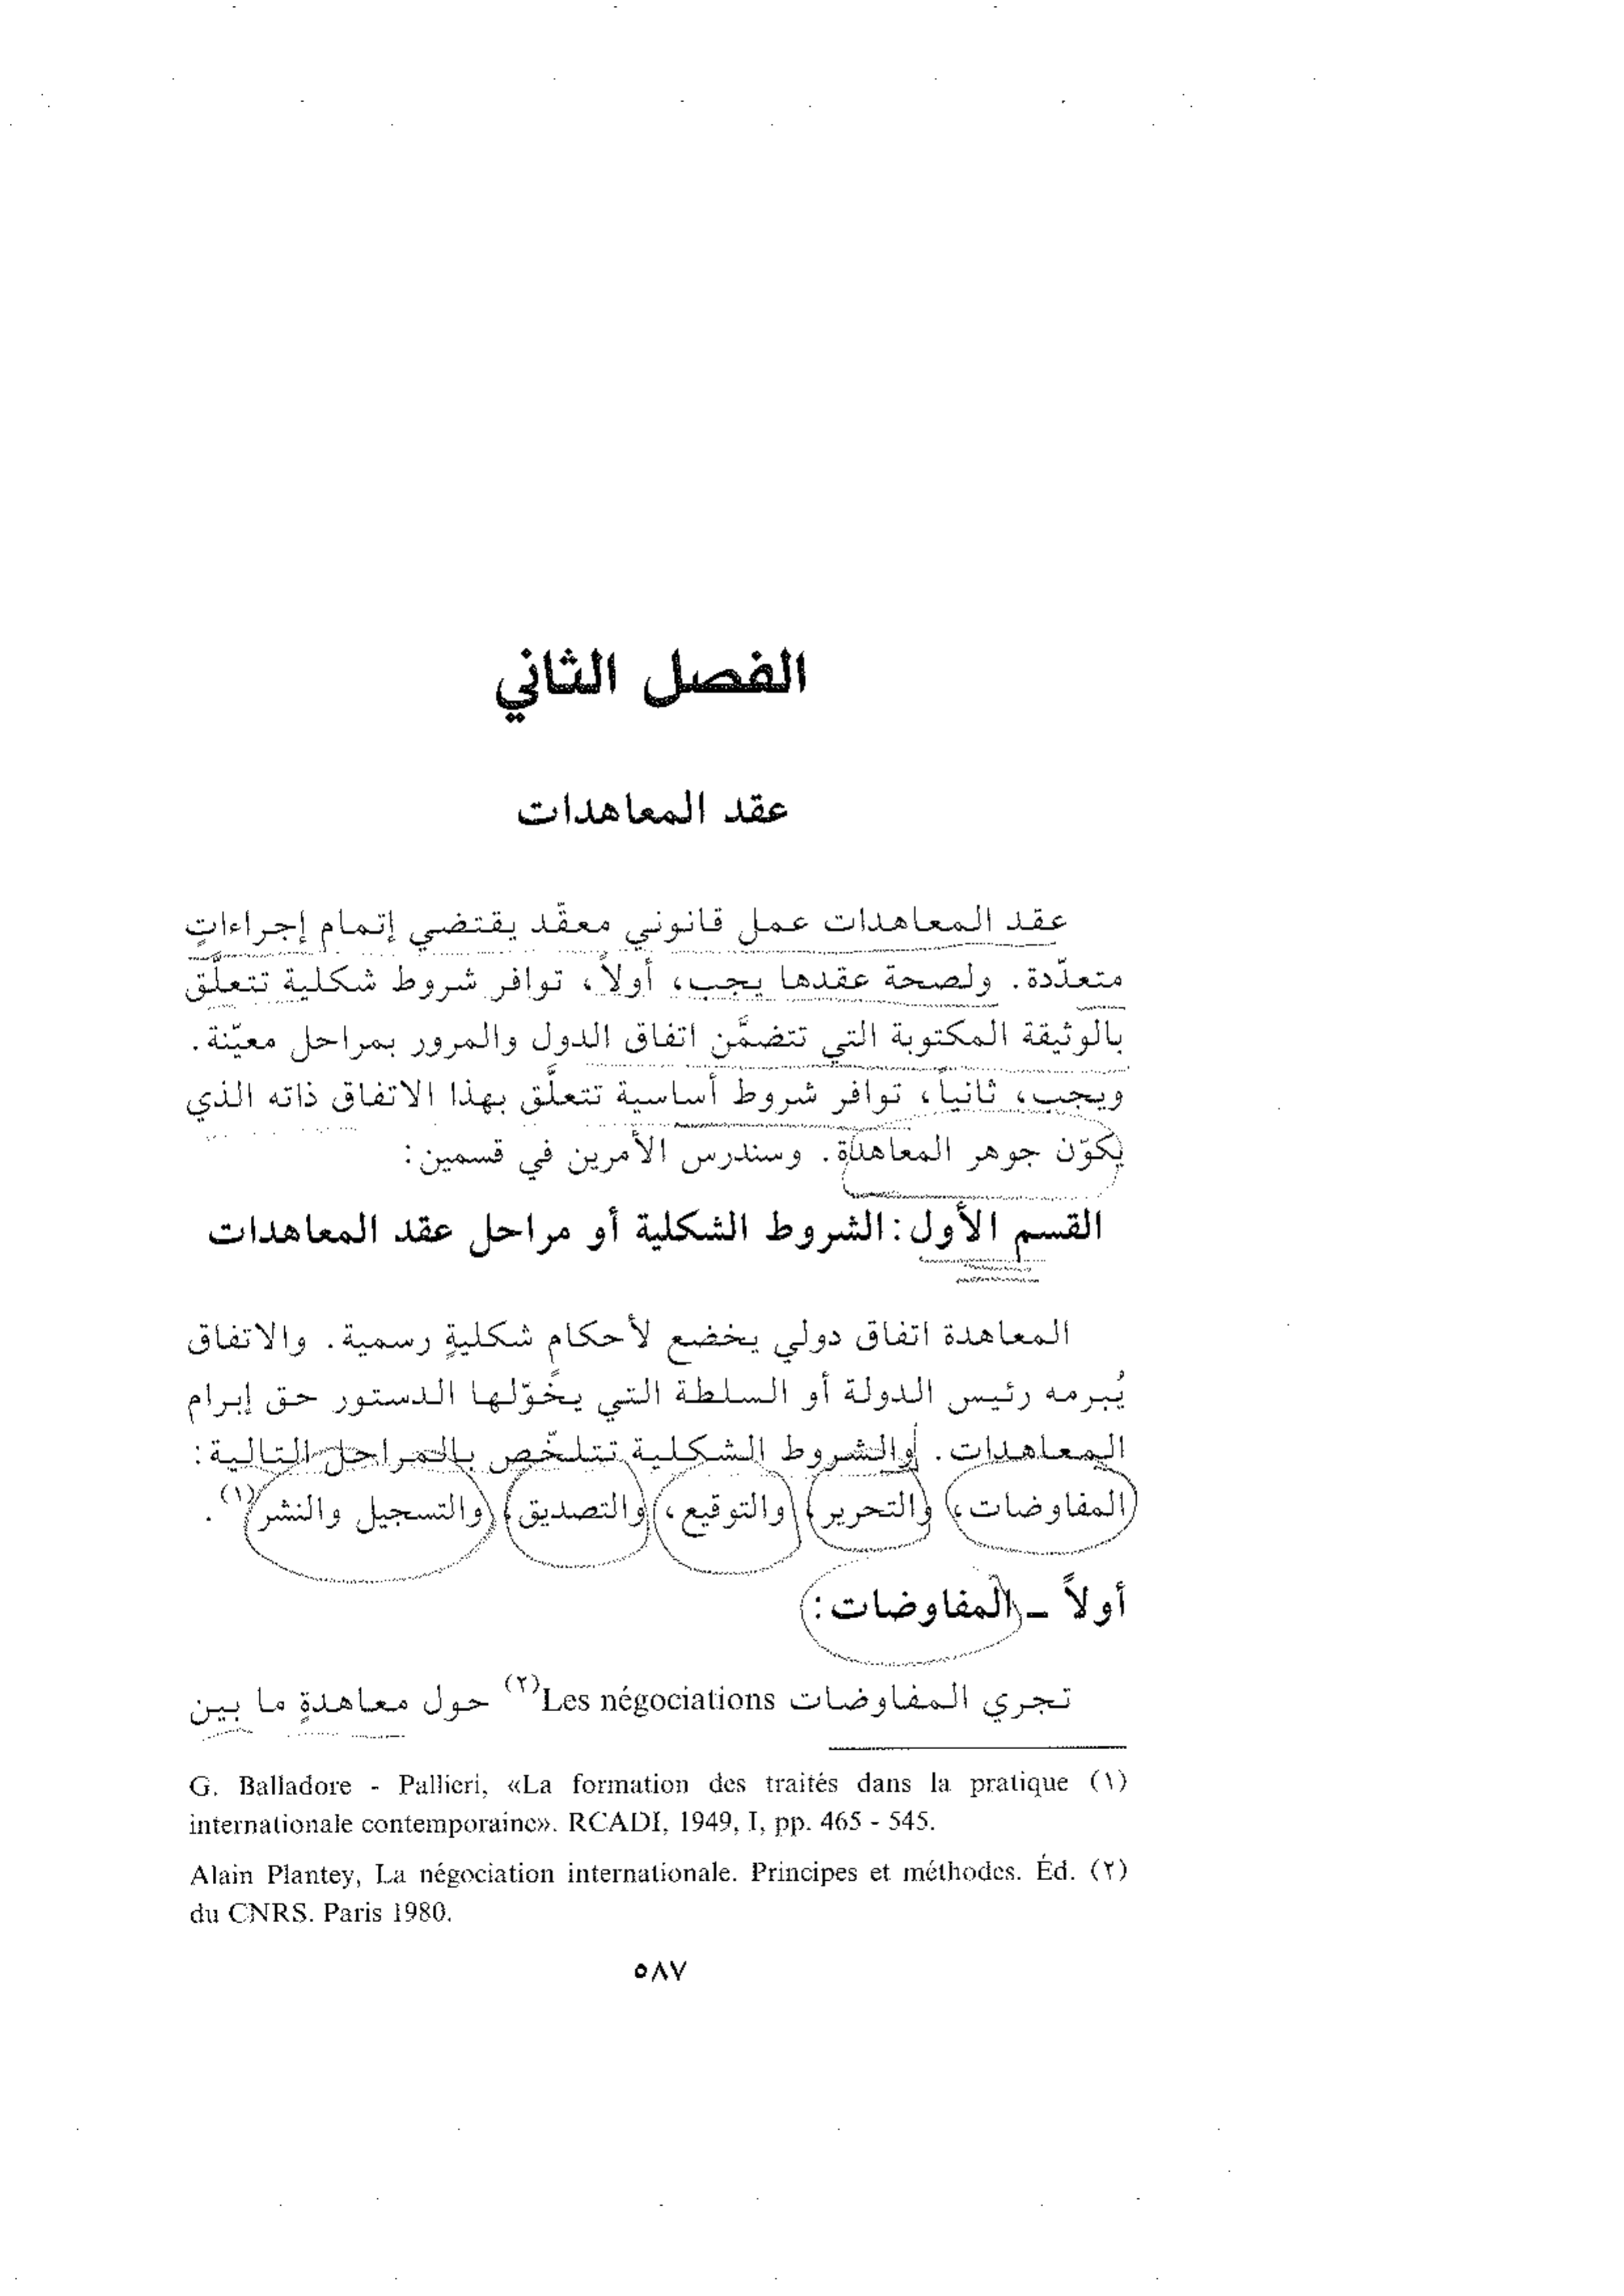 الفصل الثاني
عقد المعاهدات
عقد المعاهدات عمل قانوني معقّد يقتضي إتمام إجراءاتٍ
متعدّدة. ولصحة عقدها يجب، أولاً، توافر شروط شكلية تتعلّق
بالوثيقة المكتوبة التي تتضمَّن اتفاق الدول والمرور بمراحل معيّنة.
ويجب، ثانياً، توافر شروط أساسية تتعلَّق بهذا الاتفاق ذاته الذي
يكوّن جوهر المعاهدة. وسندرس الأمرين في قسمين:
القسم الأول: الشروط الشكلية أو مراحل عقد المعاهدات
المعاهدة اتفاق دولي يخضع لأحكام شكليةٍ رسمية. والاتفاق
يُبرمه رئيس الدولة أو السلطة التي يخَوّلها الدستور حق إبرام
المعاهدات. والشروط الشكلية تتلخّص بالمراحل التالية:
المفاوضات، والتحرير، والتوقيع، والتصديق، والتسجيل والنشر(١).
أولاً ـ المفاوضات:
تجري المفاوضات Les négociations(٢) حول معاهدةٍ ما بين
(١) G. Balladore - Pallieri, «La formation des traités dans la pratique
internationale contemporaine». RCADI, 1949, I, pp. 465 - 545.
(٢) Alain Plantey, La négociation internationale. Principes et méthodes. Éd.
du CNRS. Paris 1980.
٥٨٧